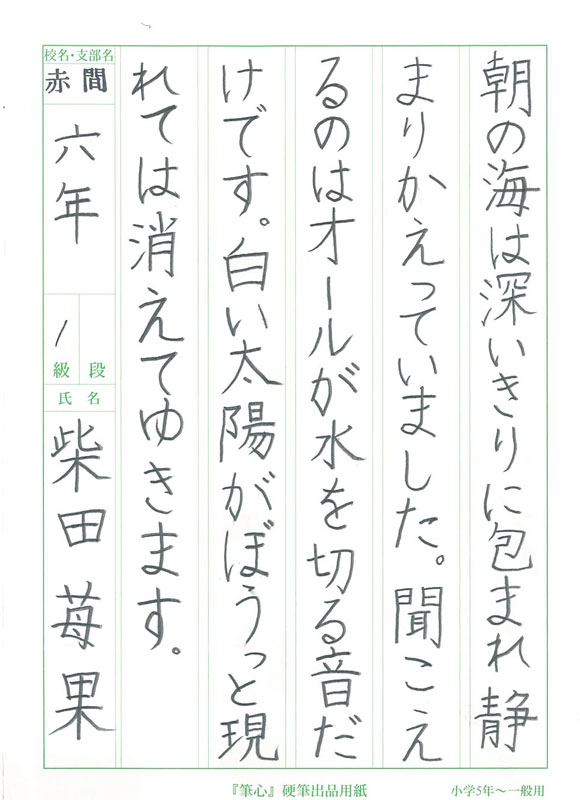 朝の海は深いきりに包まれ静
まりかえっていました。聞こえ
るのはオールが水を切る音だ
けです。白い太陽がぼうっと現
れては消えてゆきます。
校名・支部名
赤間
六年
1
級段
氏名
柴田苺果
『筆心』硬筆出品用紙
小学5年～一般用